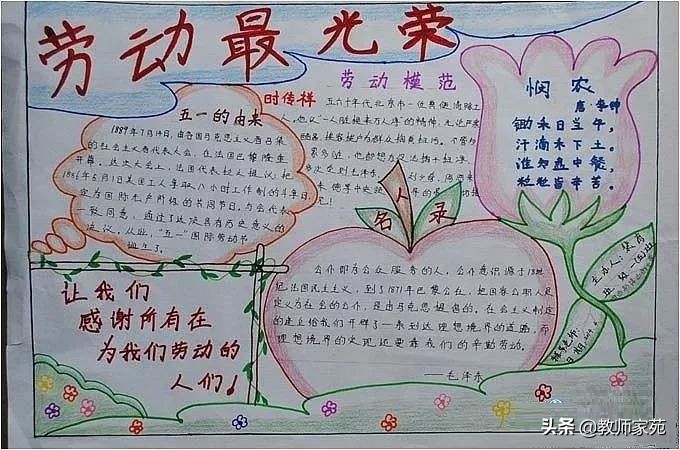 劳动最光荣
五一的由来
1889年7月14日,由各国马克思主义者召集
的社会主义者代表大会,在法国巴黎隆重
开幕。这次大会上,法国代表拉人提议:把
1886年5月1日美国工人争取八小时工作制的斗争日,
定为国际无产阶级的共同节日。与会代表
一致同意,通过了这项具有历史意义的
决议。从此,"五一"国际劳动节
诞生了。
劳动模范
时传祥
五六十年代北京市一位典便清除工
人。他以"一人脏换来万人净"的精神,无论严寒
悯农
唐·李绅
锄禾日当午,
汗滴禾下土。
谁知盘中餐,
粒粒皆辛苦。
名人录
公仆即为公众服务的人,公仆意识源于18世
纪法国民主主义,到了1871年巴黎公社,把国家公职人员
定义为社会的公仆,是由马克思提出的,在社会主义制定
的建立给我们开辟了一条到达理想境界的道路,而
理想境界的实现还要靠我们的辛勤劳动。
——毛泽东
让我们
感谢所有在
为我们劳动的
人们!
主办人:
头条 @教师家苑